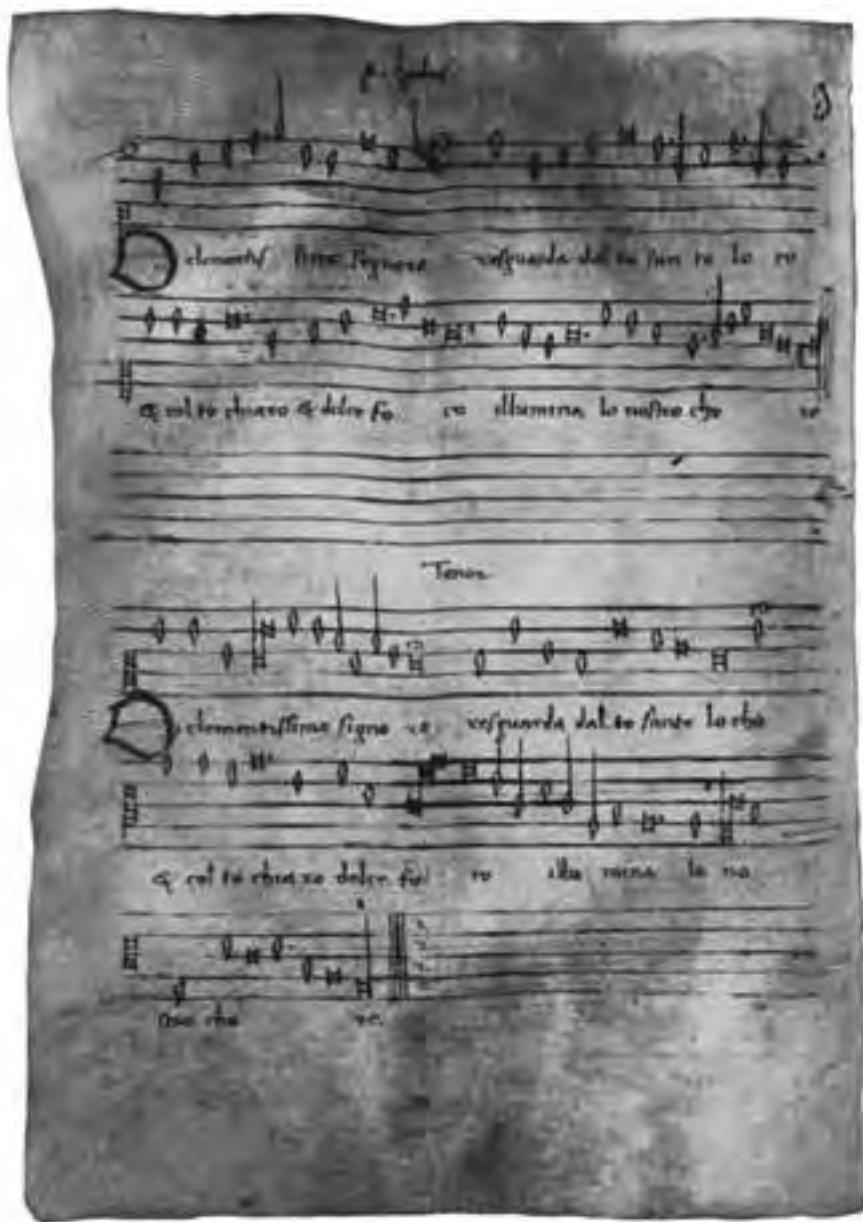 O clementissimo signore resguarda dal to sancto lo co
& col to chiaro & dolce fo co illumina lo nostro cho re
Tenor
O clementissimo signo re resguarda dal to sancto lo cho
& col to chiaro dolce fo co illu mina lo no
stro cho re.